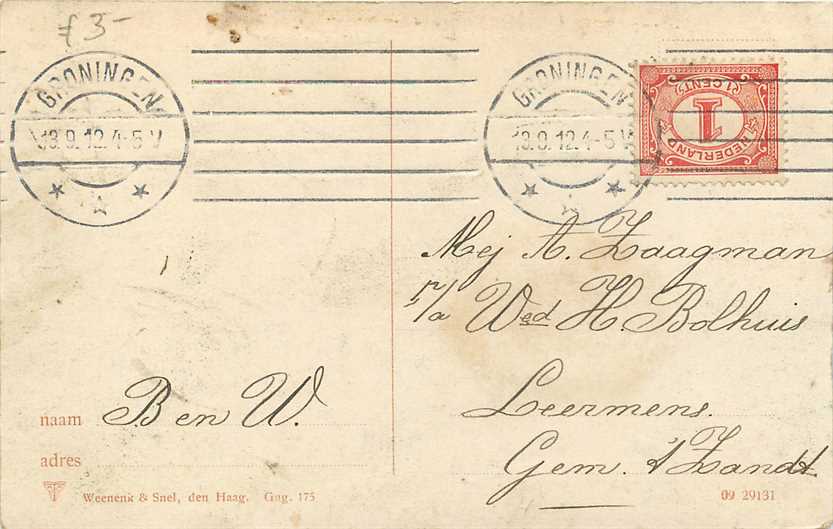 f 3-
GRONINGEN
13.9.12.4-5V
GRONINGEN
13.9.12.4-5V
1 CENT
1
NEDERLAND
Mej A. Zaagman
p/a Wed H. Bolhuis
Leermens.
Gem. 't Zandt
naam B en W.
adres
Weenenk & Snel, den Haag. Gng. 175
09 29131